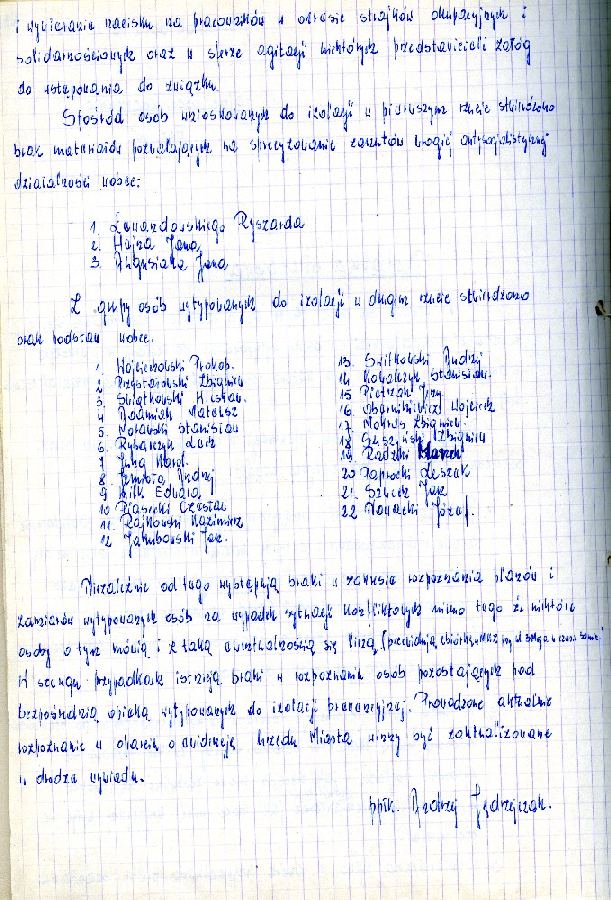 i wywieranie nacisku na pracowników w okresie strajków okupacyjnych i
solidarnościowych oraz w sferze agitacji niektórych przedstawicieli załóg
do wstępowania do związku.
Spośród osób wnioskowanych do izolacji w pierwszym rzucie stwierdzono
brak materiałów pozwalających na sprecyzowanie zarzutów wrogiej antysocjalistycznej
działalności wobec:
1. Lewandowskiego Ryszarda
2. Hajza Jana
3. Jana
Z grupy osób wytypowanych do izolacji w drugim rzucie stwierdzono
brak podstaw wobec.
1. Wojciechowski Prokop.
2. Przystański Zbigniew
3. Świątkowski Wacław.
4 Radmiak Mateusz
5. Morawski Stanisław
6. Rybarczyk Lech
7 Juha Karol.
8. Andrzej
9 Wilk Edward
10 Piasecki Czesław
11. Rajkowski Kazimierz
12. Jakubowski Jan.
13. Świtkowski Andrzej
14 Kowalczyk Stanisław.
15 Pietrzak Jerzy
16. Wojciech
17. Zbigniew.
18 Zbigniew
19. Radzki Marek
20 Paprocki Leszek
21. Jan
22 Nowacki Józef.
Niezależnie od tego występują braki w zakresie rozpoznania planów i
zamiarów wytypowanych osób na wypadek sytuacji konfliktowych mimo tego że niektóre
osoby o tym mówią i z taką ewentualnością się liczą (przewidują
W szeregu przypadkach istnieją braki w rozpoznaniu osób pozostających pod
bezpośrednią opieką wytypowanych do izolacji prewencyjnej. Prowadzone aktualnie
rozpoznanie w oparciu o ewidencję Urzędu Miasta winny być zaktualizowane
w drodze wywiadu.
ppłk. Andrzej Jędrzejczak.